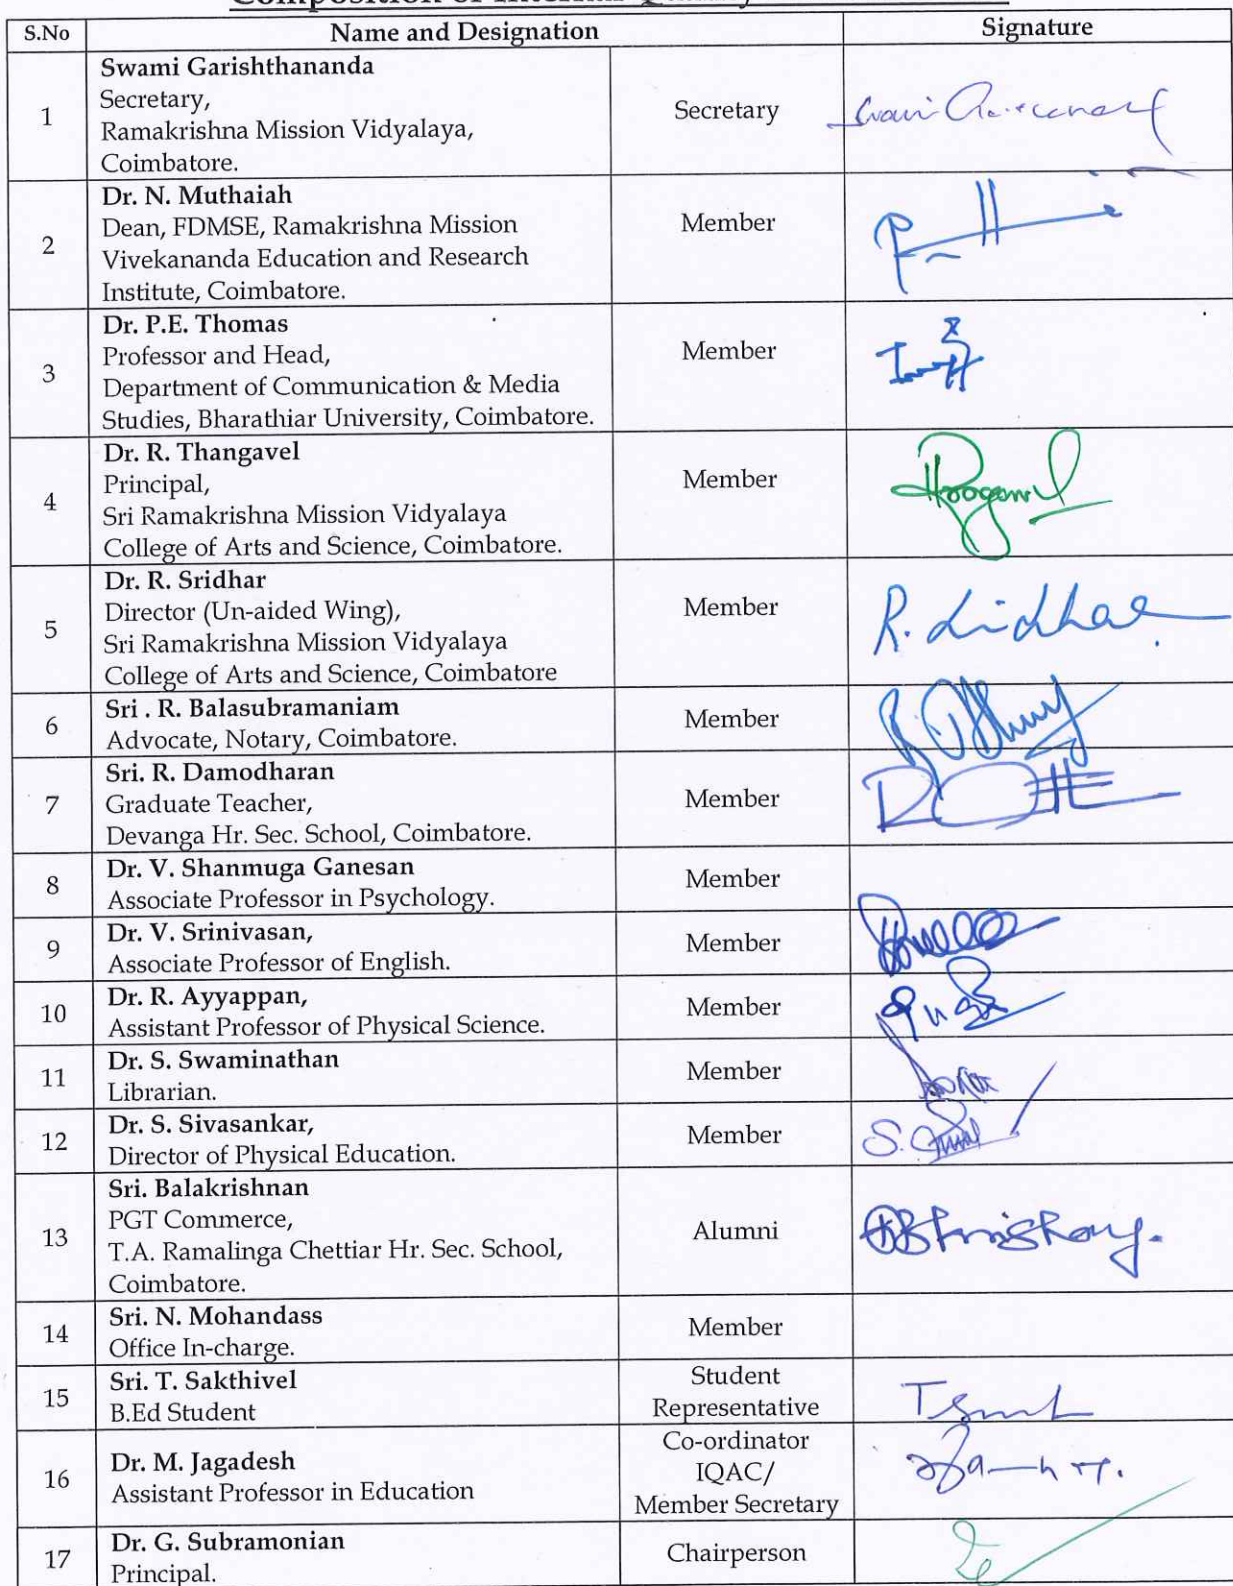 Composition of Internal Quality
S.No Name and Designation Signature
1 Swami Garishthananda
Secretary,
Ramakrishna Mission Vidyalaya,
Coimbatore.
Secretary
2 Dr. N. Muthaiah
Dean, FDMSE, Ramakrishna Mission
Vivekananda Education and Research
Institute, Coimbatore.
Member
3 Dr. P.E. Thomas
Professor and Head,
Department of Communication & Media
Studies, Bharathiar University, Coimbatore.
Member
4 Dr. R. Thangavel
Principal,
Sri Ramakrishna Mission Vidyalaya
College of Arts and Science, Coimbatore.
Member
5 Dr. R. Sridhar
Director (Un-aided Wing),
Sri Ramakrishna Mission Vidyalaya
College of Arts and Science, Coimbatore
Member
R. Sridhar
6 Sri . R. Balasubramaniam
Advocate, Notary, Coimbatore.
Member
7 Sri. R. Damodharan
Graduate Teacher,
Devanga Hr. Sec. School, Coimbatore.
Member
8 Dr. V. Shanmuga Ganesan
Associate Professor in Psychology.
Member
9 Dr. V. Srinivasan,
Associate Professor of English.
Member
10 Dr. R. Ayyappan,
Assistant Professor of Physical Science.
Member
11 Dr. S. Swaminathan
Librarian.
Member
12 Dr. S. Sivasankar,
Director of Physical Education.
Member
13 Sri. Balakrishnan
PGT Commerce,
T.A. Ramalinga Chettiar Hr. Sec. School,
Coimbatore.
Alumni
14 Sri. N. Mohandass
Office In-charge.
Member
15 Sri. T. Sakthivel
B.Ed Student
Student
Representative
16 Dr. M. Jagadesh
Assistant Professor in Education
Co-ordinator
IQAC/
Member Secretary
17 Dr. G. Subramonian
Principal.
Chairperson